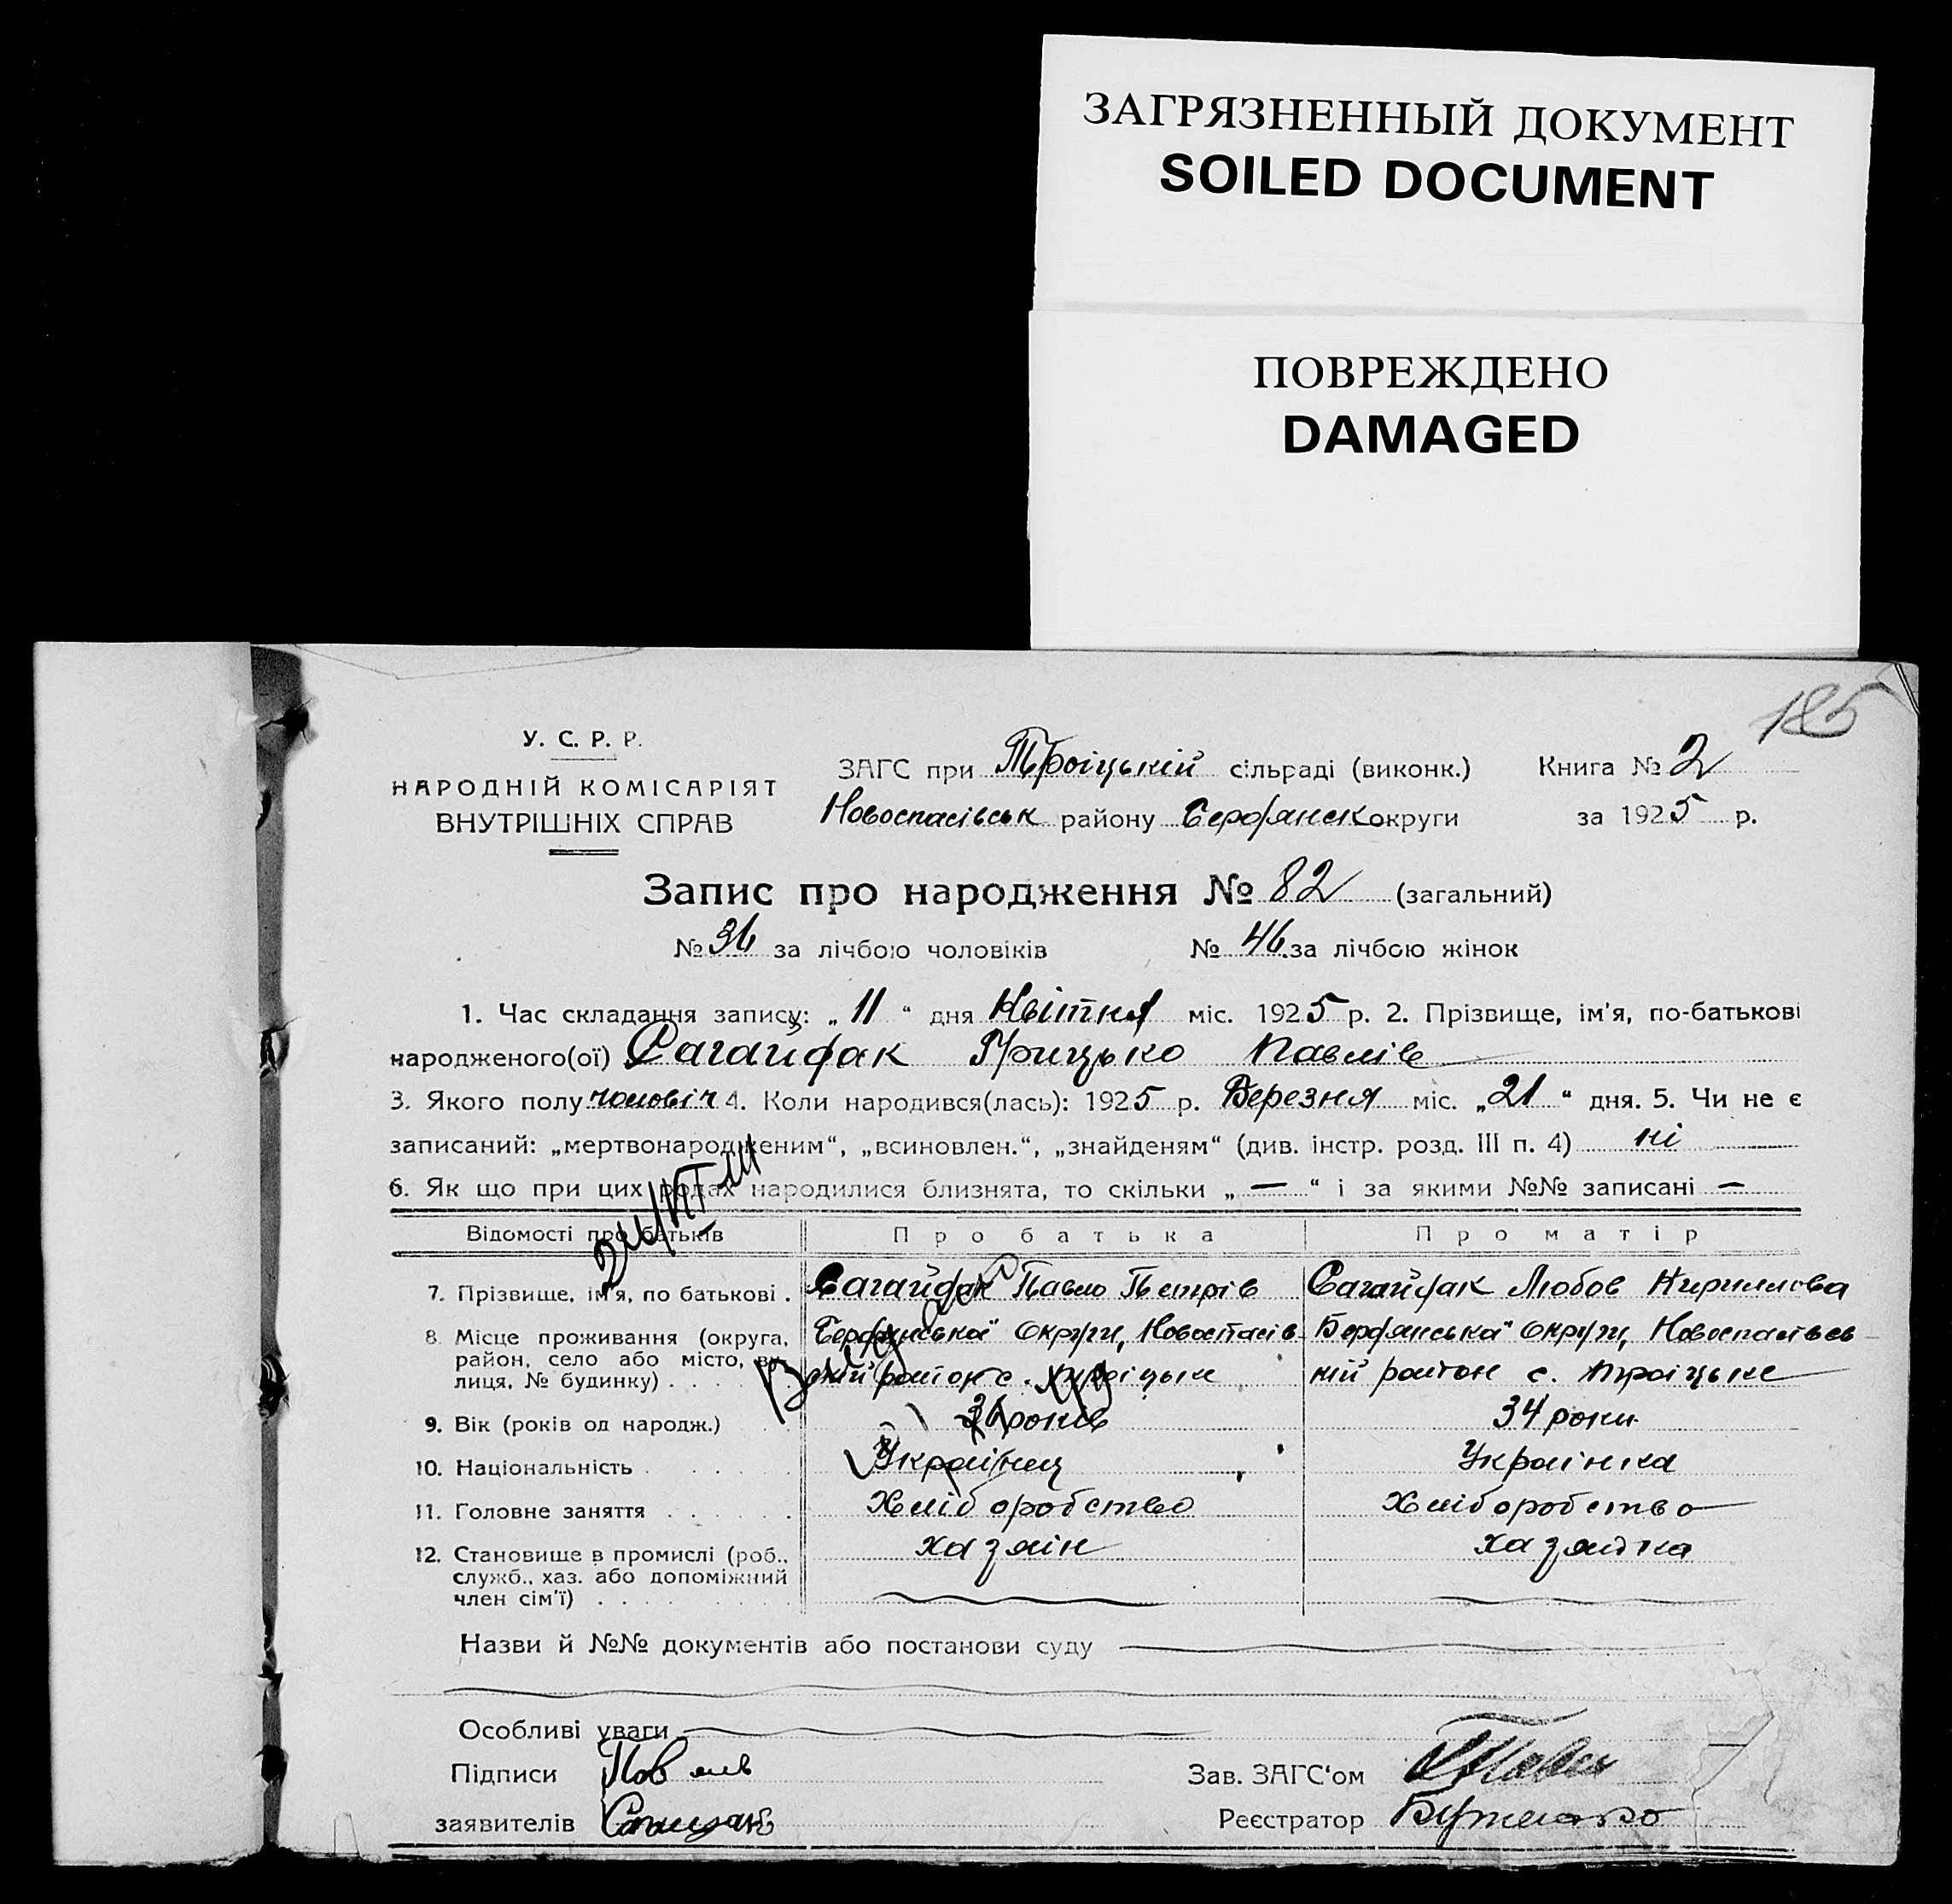 ЗАГРЯЗНЕННЫЙ ДОКУМЕНТ
SOILED DOCUMENT
ПОВРЕЖДЕНО
DAMAGED
185
У. С. Р. Р.
НАРОДНІЙ КОМІСАРІЯТ
ВНУТРІШНІХ СПРАВ
ЗАГС при Троіцькій сільраді (виконк.) Книга № 2
Новоспасівськ району Бердянськ округи за 1925 р.
Запис про народження № 82 (загальний)
№ 36 за лічбою чоловіків № 46 за лічбою жінок
1. Час складання запису: „ 11 “ дня Квітня міс. 1925 р. 2. Прізвище, ім'я, по-батькові
народженого(ої) Сагайдак Грицько Павлів
3. Якого полу чоловіч 4. Коли народився(лась): 1925 р. Березня міс. „ 21 “ дня. 5. Чи не є
записаний: „мертвонародженим“, „всиновлен.“, „знайденям“ (див. інстр. розд. III п. 4) ні
6. Як що при цих родах народилися близнята, то скільки „ — “ і за якими №№ записані —
Відомості про батьків Про батька Про матір
7. Прізвище, ім'я, по батькові . Сагайдак Павло Петрів Сагайдак Любов Кирилова
8. Місце проживання (округа, район, село або місто, вулиця, № будинку) . . . Бердянської Округи, Новоспасів Бердянської Округи, Новоспасівсь
ский район с. Троіцьке кий район с. Троіцьке
9. Вік (років од народж.) 36 років 34 роки
10. Національність . . . . . Українец Українка
11. Головне заняття . . . . . . Хліборобство Хліборобство
12. Становище в промислі (роб., служб., хаз. або допоміжний член сім'ї) . . . . . . . хазяін хазяйка
Назви й №№ документів або постанови суду
Особливі уваги
Підписи Зав. ЗАГС'ом
заявителів Реєстратор